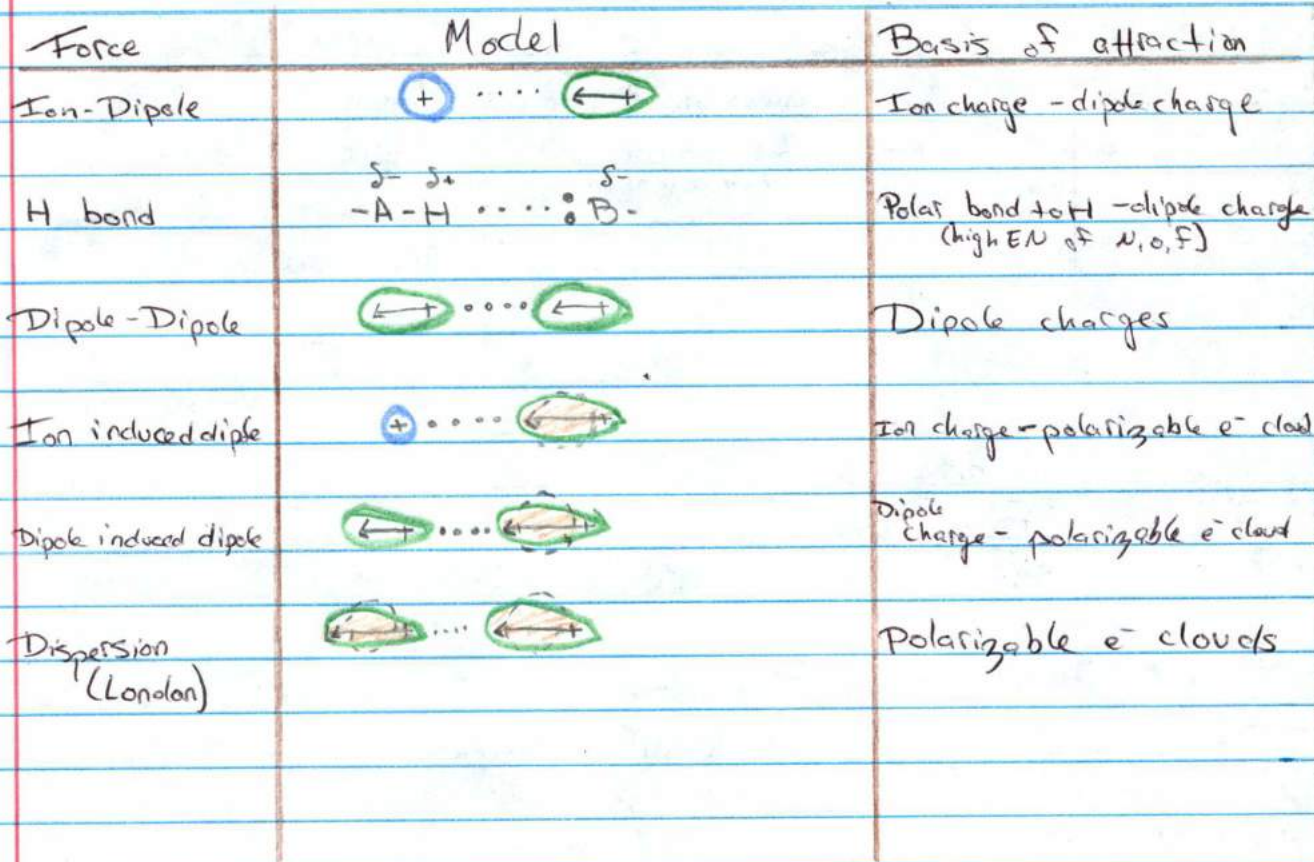 Force Model Basis of attraction
Ion-Dipole + Ion charge - dipole charge
δ- δ+ δ-
H bond -A-H ····:B- Polar bond to H -dipole charge
(high EN of N,O,F)
Dipole-Dipole Dipole charges
Ion induced diple + Ion charge-polarizable e⁻ cloud
Dipole induced dipole Dipole
charge - polarizable e⁻ cloud
Dispersion Polarizable e⁻ clouds
(London)